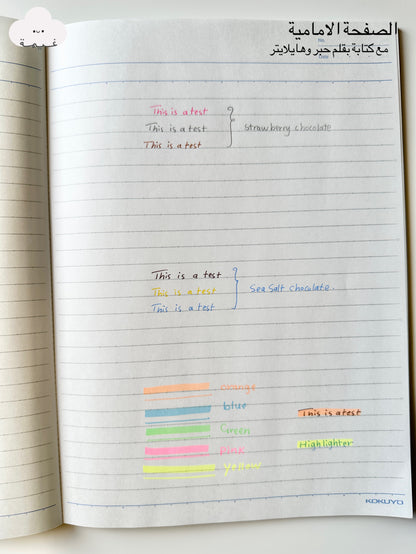 الصفحة الامامية
مع كتابة بقلم حبر وهايلايتر
غيمة
No.
Date
This is a test
This is a test
This is a test
Strawberry chocolate
This is a test
This is a test
This is a test
Sea Salt chocolate.
orange
blue
Green
Pink
Yellow
This is a test
Highlighter
KOKUYO